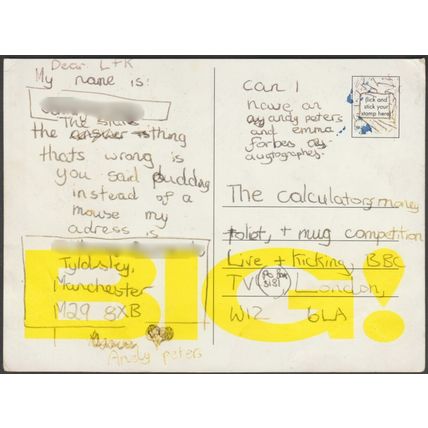 Dear L+K
My name is:
The
the thing
thats wrong is
you said pudding
instead of a
mouse my
adress is
Tyldsley,
Manchester
M29 8XB
Andy Peters
can I
have an
andy peters
and emma
forbes
augtographes.
lick and
stick your
stamp here
The calculator, money
toliot, + mug competition
Live + Kicking, BBC
TV PO Box 3131 London,
W12 6LA
BIG!